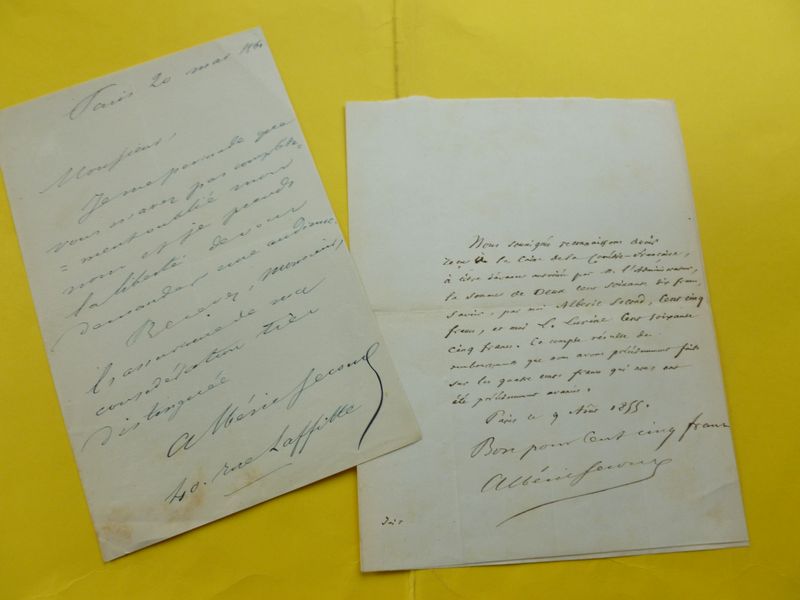 Paris 20 mai
Monsieur,
Je me persuade que
vous n'avez pas complète
= ment oublié mon
nom et je prends
la liberté de vous
demander une audience.
Recevez, Monsieur,
l'assurance de ma
considération très
distinguée
Albéric Second
40. rue Laffitte
Nous soussignés reconnaissons avoir
reçu à la Caisse de la Comédie-française,
à titre d'avance autorisée par M. l'Administrateur,
la somme de Deux cent soixante dix francs,
savoir, par moi Albéric Second, Cent cinq
francs, et moi L. Lurine Cent soixante
cinq francs. Ce compte résulte du
remboursement que nous avons précédemment fait
sur les quatre cents francs qui nous ont
été précédemment avancés.
Paris ce 9 1855.
Bon pour Cent cinq francs
Albéric Second